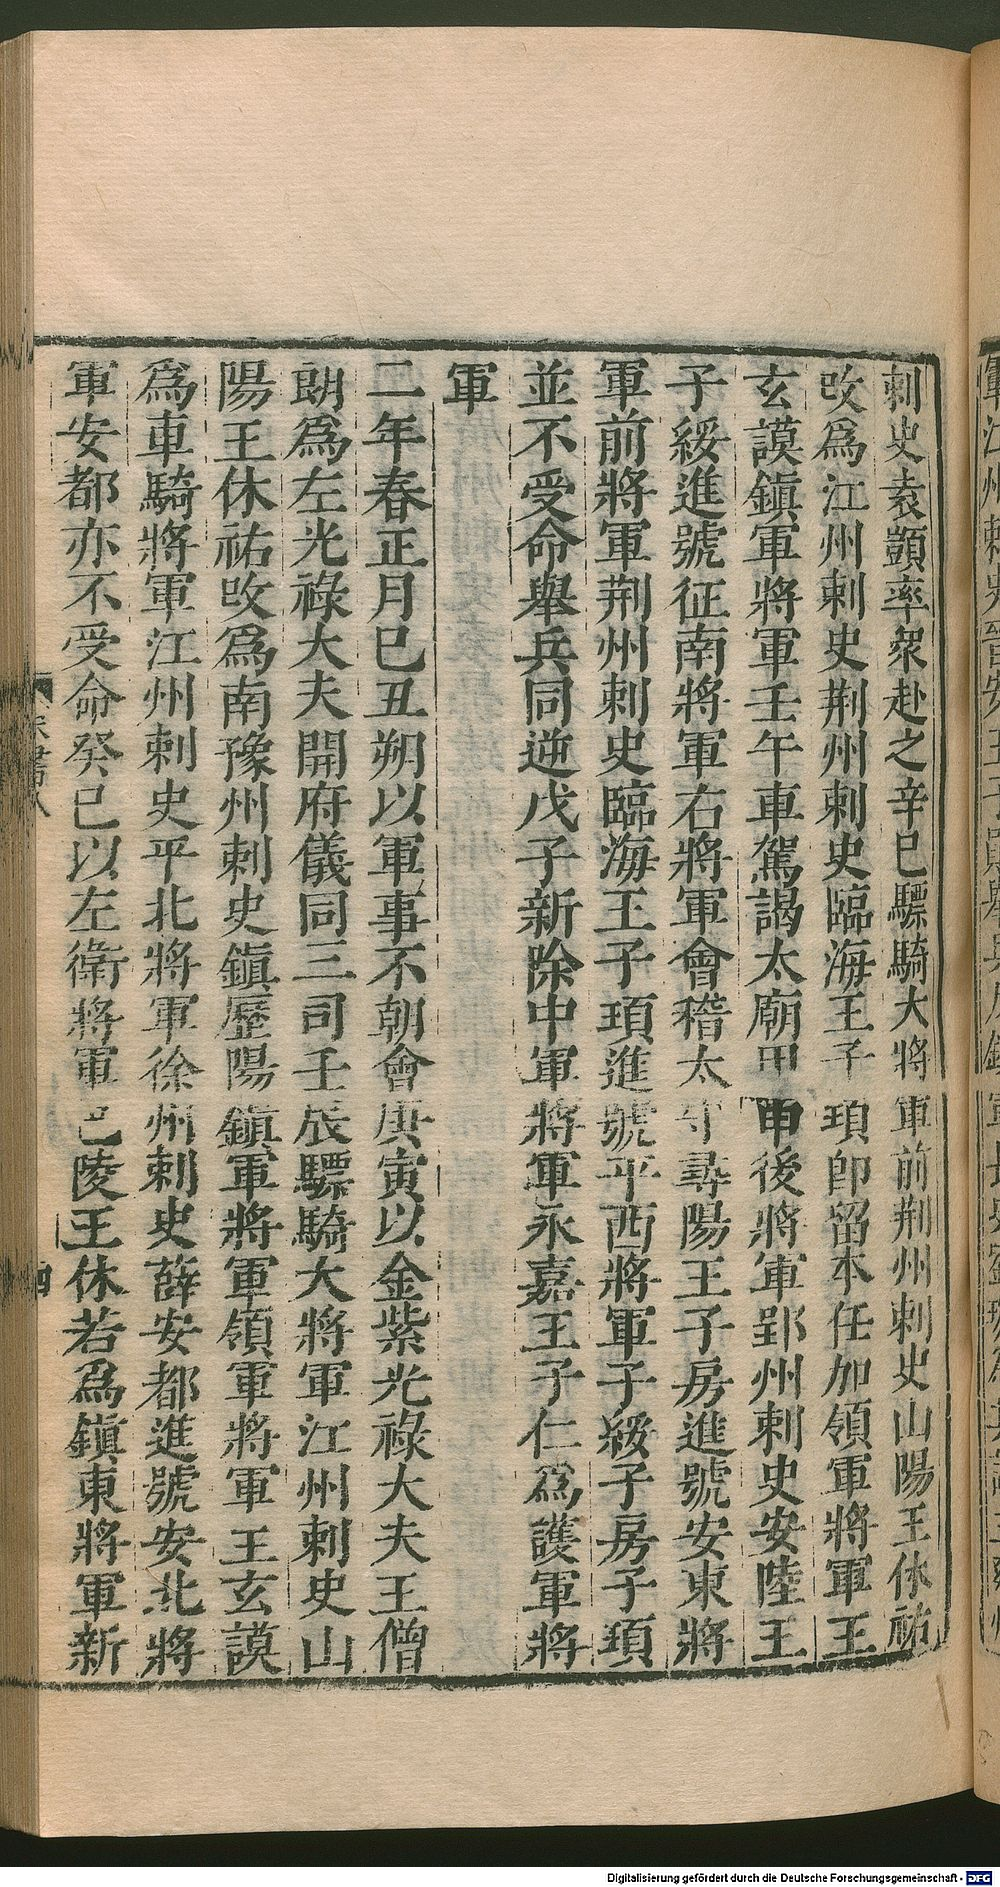 刺史袁顗率衆赴之辛巳驃騎大將軍前荆州刺史山陽王休祐
改爲江州刺史荆州刺史臨海王子頊即留本任加領軍將軍王
玄謨鎮軍將軍壬午車駕謁太廟甲申後將軍郢州刺史安陸王
子綏進號征南將軍右將軍會稽太守尋陽王子房進號安東將
軍前將軍荆州刺史臨海王子頊進號平西將軍子綏子房子頊
並不受命舉兵同逆戊子新除中軍將軍永嘉王子仁爲護軍將
軍
二年春正月巳丑朔以軍事不朝會庚寅以金紫光祿大夫王僧
朗爲左光祿大夫開府儀同三司壬辰驃騎大將軍江州刺史山
陽王休祐改爲南豫州刺史鎮歷陽鎮軍將軍領軍將軍王玄謨
爲車騎將軍江州刺史平北將軍徐州刺史薛安都進號安北將
軍安都亦不受命癸巳以左衛將軍巴陵王休若爲鎮東將軍新
宋書八
四
Digitalisierung gefördert durch die Deutsche Forschungsgemeinschaft - DFG